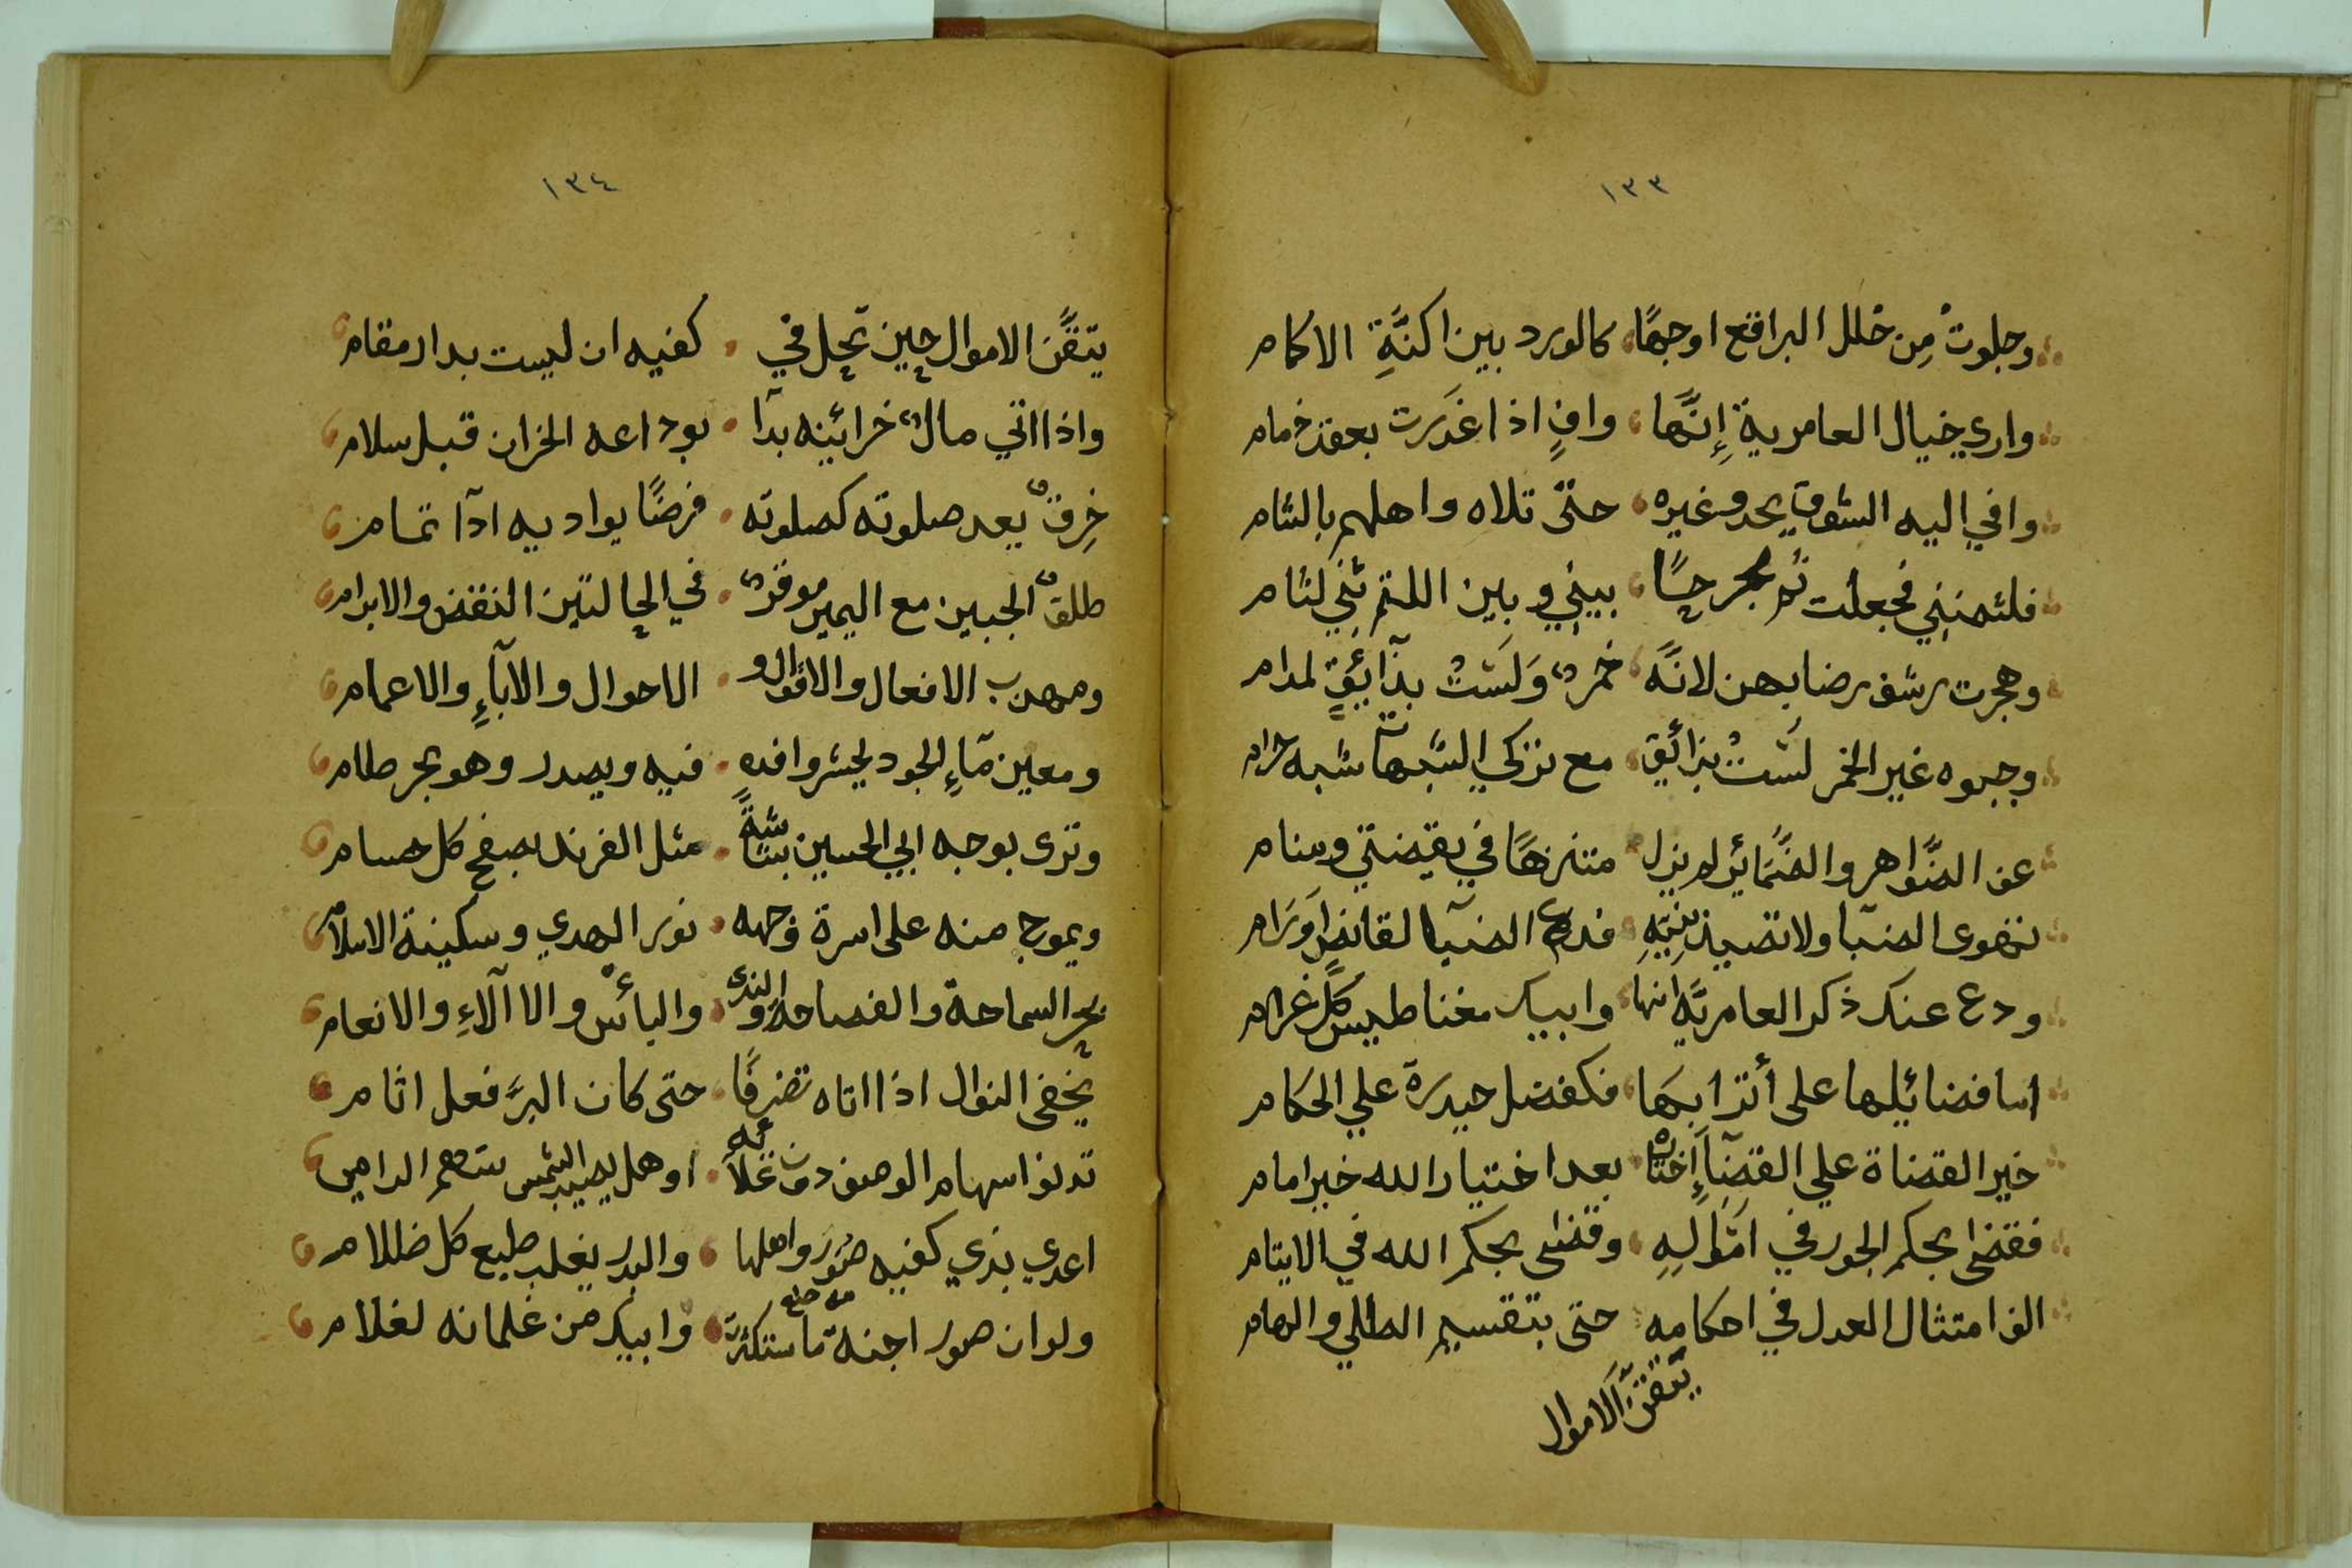 ١٣٣
وجلوتْ مِن خلل البراقع اوجهًا كالورد بين اكنَّةِ الاكمام
وارى خيال العامرية إِنَّها وافٍ اذا غدَرت بعقد خمام
وافي اليه الشوق يحدو غيره حتىّ تلاه واهلهم بالشام
فلثمنني فجعلت ثم حسًا بيني وبين اللثم ثِني لثام
وهجرت رشف رضابهن لانَّه خمرٌ وَلَسَتْ بذآئِقٍ لمدام
وجبوه غير الخمر لَسَتْ بذائق مع تزكي الشبهات شبه حرام
عف الضَّواهر والضَّمَائر لم يزل متنزهًا في يقضتي ومنام
نهوى الضبا ولا تصيد فدع الضبآ لقانصٍ
ودع عنك ذكر العامريَّه انها وابيك مغناطيس كلّ غرام
اما فضائِلها على أترابهَا فكفضل حيدرة علي الحكام
خير القضاة علي القضآءِ إختاره بعد اختيار الله خير امام
فقضى بحكم الجور في امَّوالِهِ وقضى بحكم الله في الايتام
الف امتثال العدل في احكامه حتى بتقسيم الطلي والهام
يتقنَّ الاموال
١٣٤
يتقَّن الاموال حين تحِل في كفيه ان ليست بدار مقام
واذا اتي مالٌ خزائِنه بدآ بوداعه الخزان قبل سلام
خِرقٌ يعد صلوته كصلوته فرضًا يواديه ادآ تمام
طلقٌ الجبين مع اليمين موقرٌ في الحالتين النقض والابرام
ومهدب الافعال والاقوال و الاحوال والابآءِ والاعمام
ومعين مآءِ الجود لحشر وافده فيه ويصدر وهو بحر طام
وترى بوجه ابي الحسين بشاشةًً مثل الفرند بصفح كل حسام
ويموج منه على اسرة وجهه نور الهدي وسكينة الاسلام
بحر السماحة والفصاحة والندى و والبأس والا الآءِ والانعام
يخفى النوال اذا اتاه تضرفًا حتى كان البرَّ فعل اثام
تدنو اسهام الوصف دون علائه اوهل يصيب الشمس سهم الرامي
اعدي بذي كفيه صور واهلها والبدر يغلب طبع كل ظلام
ولو ان صور اجنة ما استكثرت من حلع وابيك من غلمانه لغلام